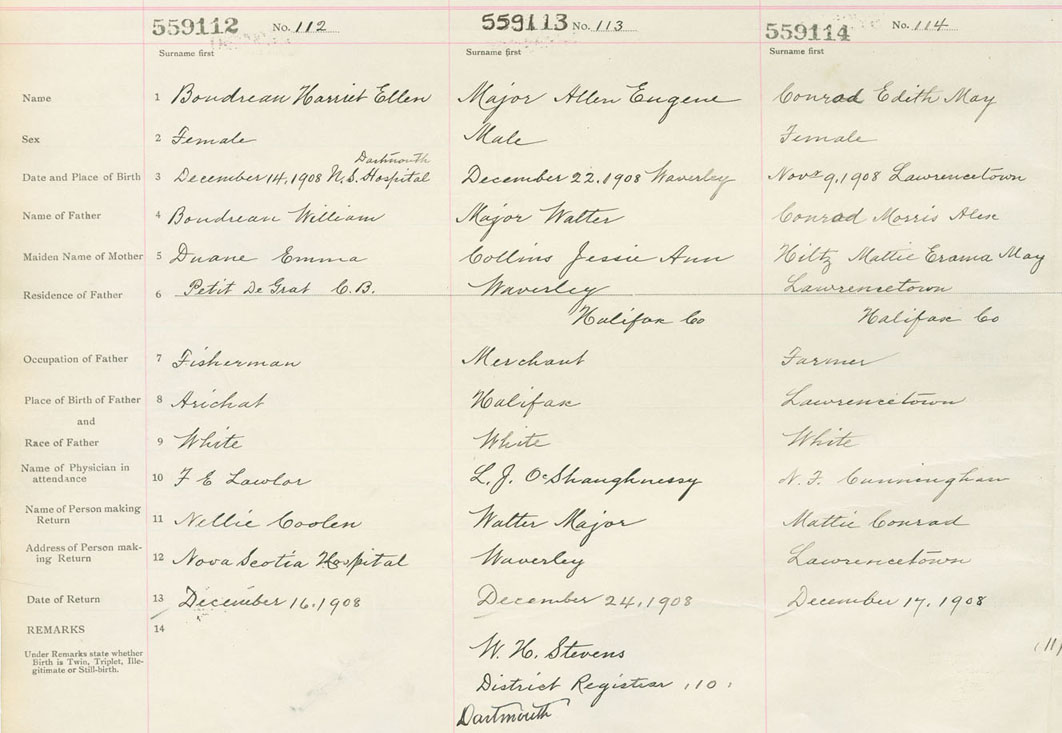 559112 No. 112 559113 No. 113 559114 No. 114
Surname first Surname first Surname first
Name 1 Boudreau Harriet Ellen Major Allen Eugene Conrad Edith May
Sex 2 Female Male Female
Dartmouth
Date and Place of Birth 3 December 14, 1908 N.S. Hospital December 22, 1908 Waverley Nov 9, 1908 Lawrencetown
Name of Father 4 Boudreau William Major Walter Conrad Morris Alex
Maiden Name of Mother 5 Duane Emma Collins Jessie Ann Hiltz Mattie May
Residence of Father 6 Petit De Grat C.B. Waverley Lawrencetown
Halifax Co Halifax Co
Occupation of Father 7 Fisherman Merchant Farmer
Place of Birth of Father 8 Arichat Halifax Lawrencetown
and
Race of Father 9 White White White
Name of Physician in
attendance 10 F E Lawlor L. J. O'Shaughnessy N. F. Cunningham
Name of Person making
Return 11 Nellie Coolen Walter Major Mattie Conrad
Address of Person mak-
ing Return 12 Nova Scotia Hospital Waverley Lawrencetown
Date of Return 13 December 16, 1908 December 24, 1908 December 17, 1908
REMARKS 14
Under Remarks state whether
Birth is Twin, Triplet, Ille-
gitimate or Still-birth.
W. H. Stevens
District Registrar :10:
Dartmouth
(11)